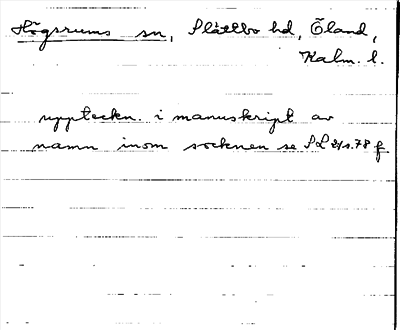 Högsrums sn, Slättbo hd, Öland,
Kalm. l.
uppteckn. i manuskript av
namn inom socknen se SL 21 s. 78 f